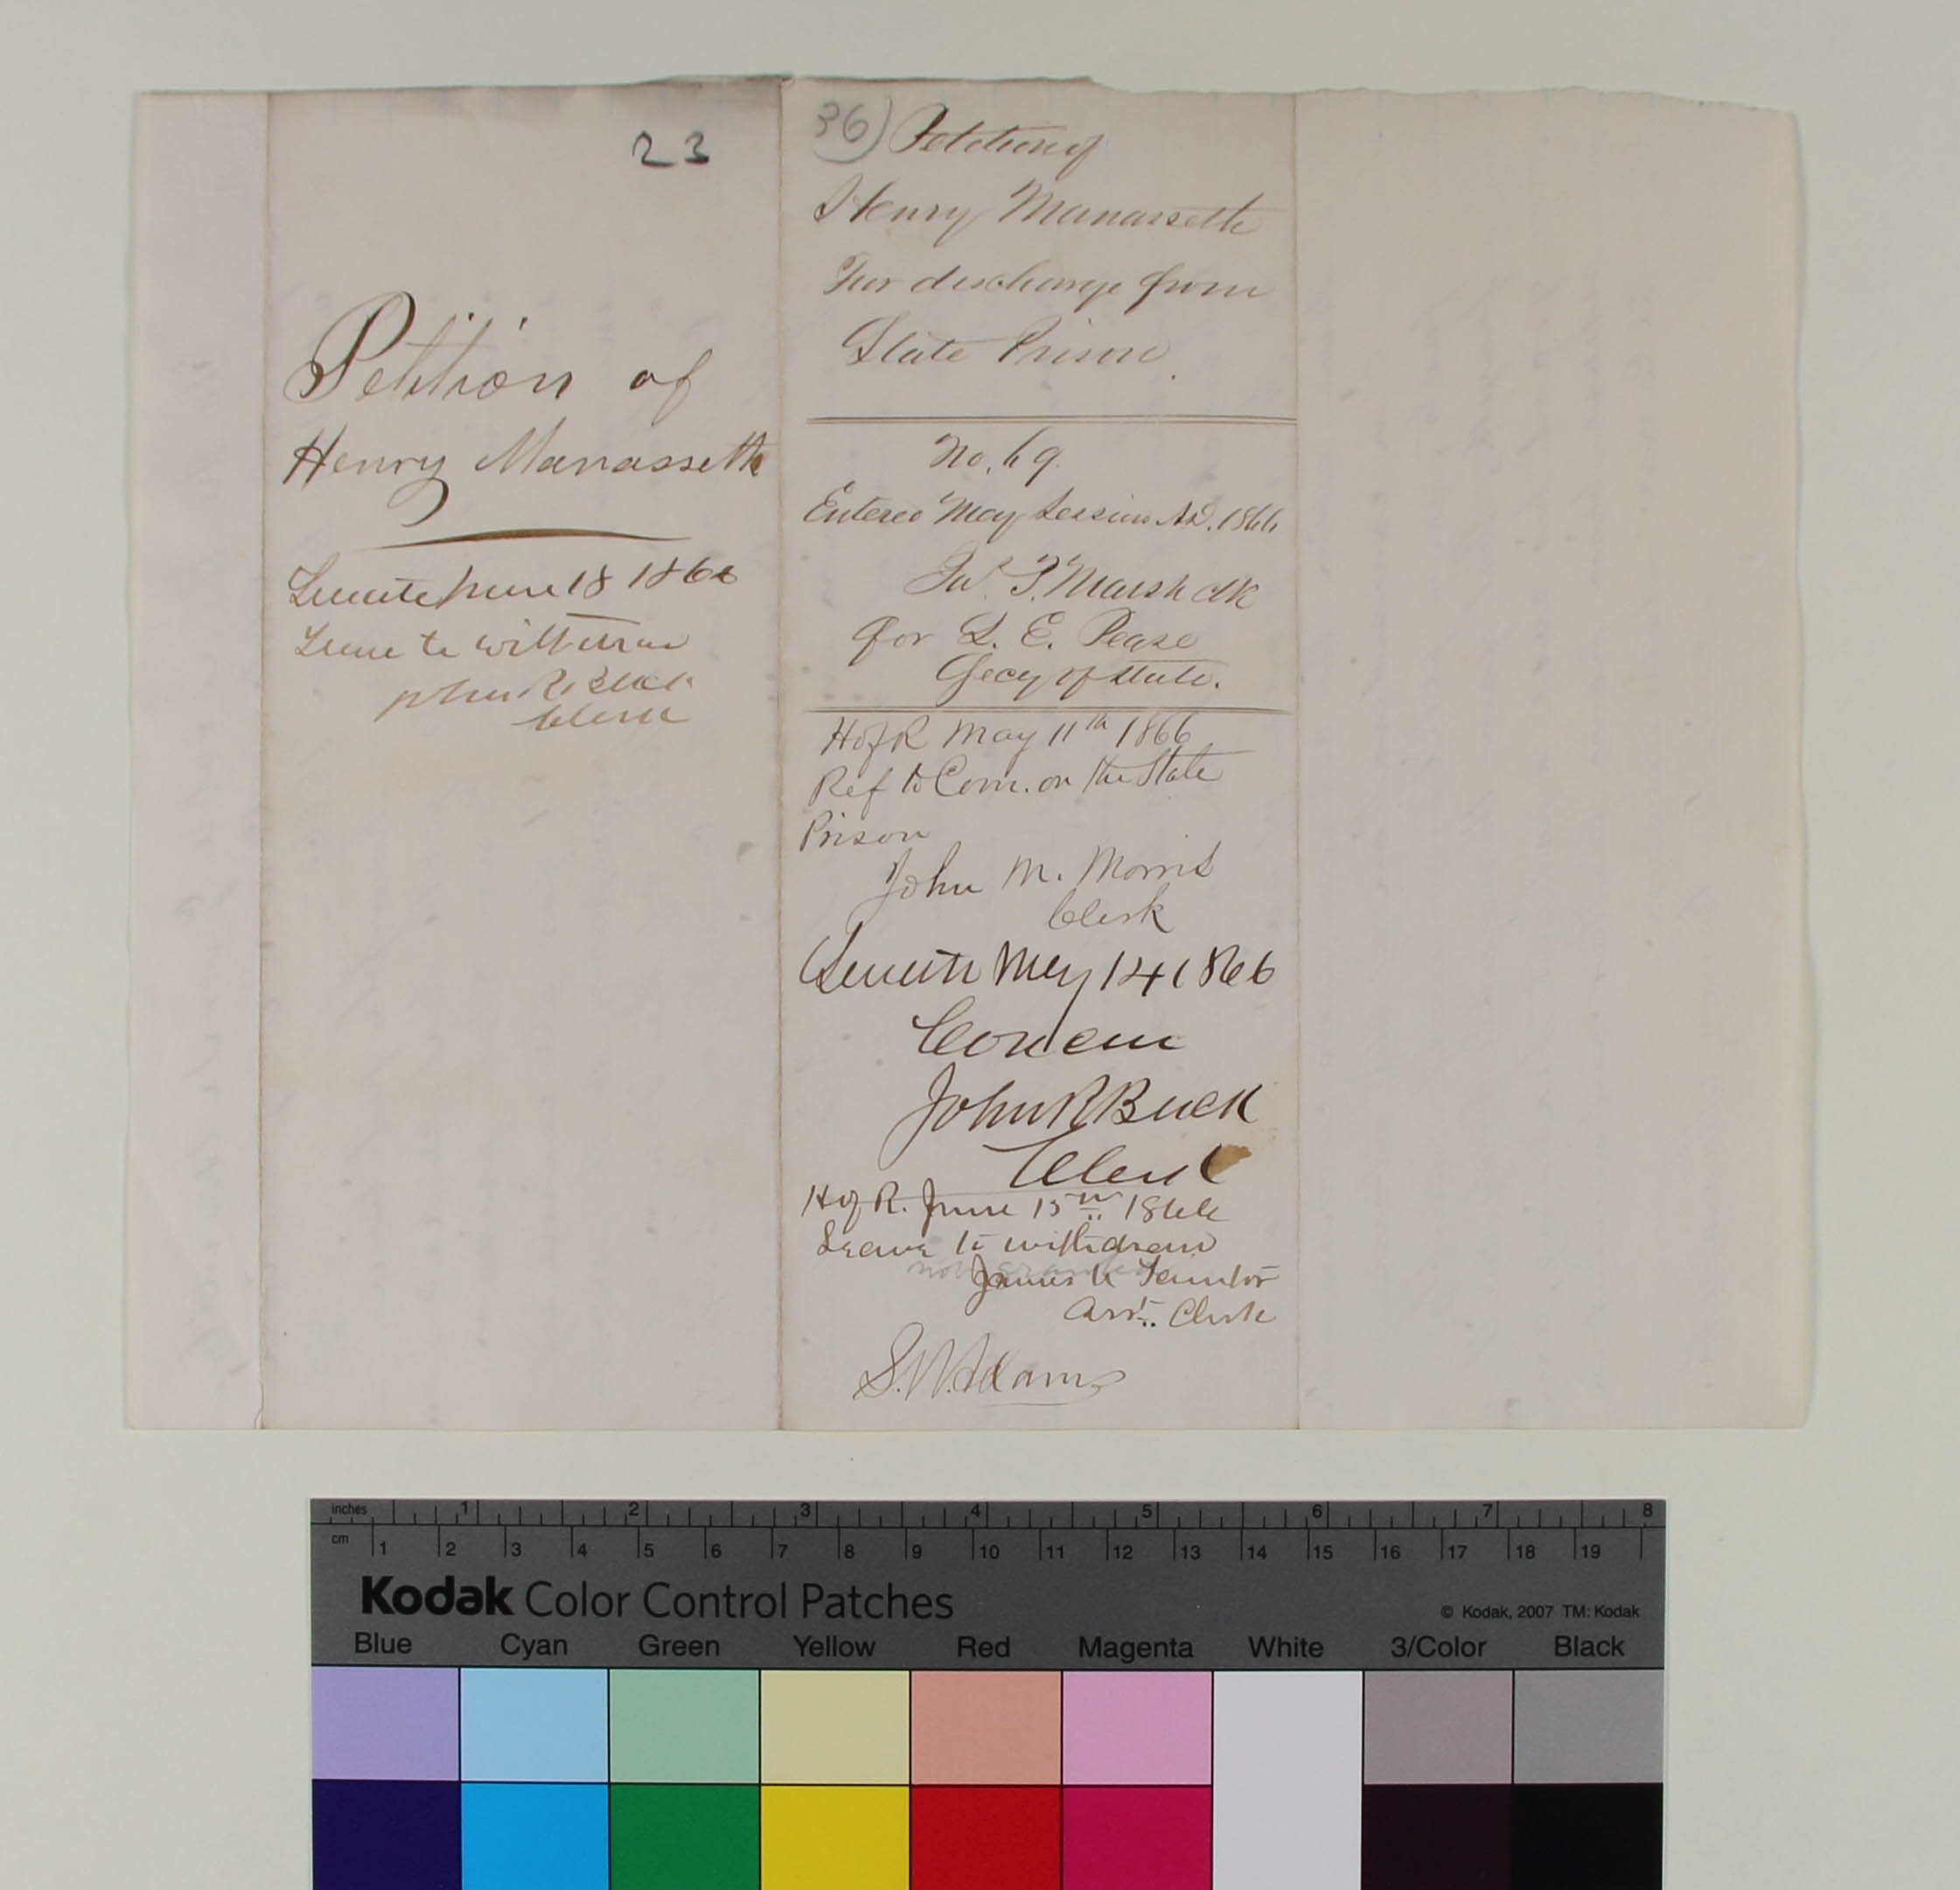 23
Petition of
Henry Manasseth
Senate June 18 1866
Leave to withdraw
John R Buck
Clerk
36) Petition of
Henry Manasseth
For discharge from
State Prison.
No. 69.
Entered May Session A.D. 1866
Jno. T. Marsh clk
for L. E. Pease
Secy of State.
H of R May 11th 1866
Ref to Com. on the State
Prison
John M. Morris
Clerk
Senate May 14 1866
Concur
John R Buck
Clerk
H of R. June 15th 1866
Leave to withdraw
not granted
James U Taintor
Asst. Clerk
S. W. Adams
inches 1 2 3 4 5 6 7 8
cm 1 2 3 4 5 6 7 8 9 10 11 12 13 14 15 16 17 18 19
Kodak Color Control Patches
© Kodak, 2007 TM: Kodak
Blue Cyan Green Yellow Red Magenta White 3/Color Black